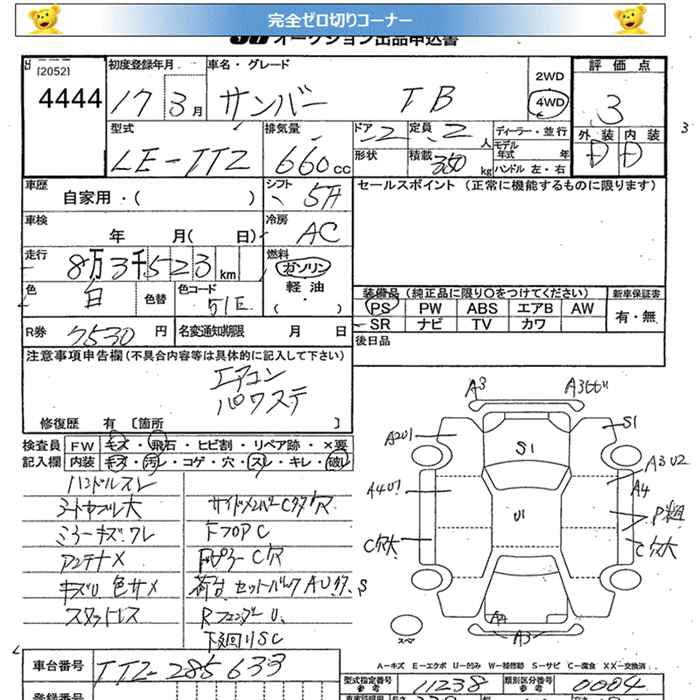 完全ゼロ切りコーナー
オークション出品申込書
[2052]
4444
初度登録年月
17 3月
車名・グレード
サンバー TB
2WD
4WD
評価点
3
3
外装 内装
D D
型式
LE-TT2
排気量
660cc
ドア
2
定員
2人
ディーラー・並行
モデル年式 年
形状
積載
350kg
ハンドル 左・右
車歴
自家用・( )
シフト
5F
セールスポイント (正常に機能するものに限ります)
車検
年 月( 日)
冷房
AC
走行
8万3千523km
燃料
ガソリン
軽油
( ・ )
色
白
色替
色コード
51E
装備品 (純正品に限り〇をつけてください)
新車保証書
PS PW ABS エアB AW
有・無
SR ナビ TV カワ
R券 7530円
名変通知期限 月 日
後日品
注意事項申告欄(不具合内容等は具体的に記入して下さい)
エアコン
パワステ
修復歴 有〔箇所 〕
検査員 FW キズ・飛石・ヒビ割・リペア跡・×要
記入欄 内装 キズ・汚レ・コゲ・穴・スレ・キレ・破レ
ハンドルスレ
シートヤブレ大 サイドメンバーCタ穴
ミラーキズワレ FフロアC
アンテナメ FピラーC穴
キズU 色サメ 荷台セットバックAUサS
スタッドレス RフェンダーU
下廻リSC
A3
A3
S1
A2U1
S1
A3U2
A4U1
A4
U1
P粗
C穴大
C穴大
A4
A3
スペア
A-キズ E-エクボ U-凹み W-補修跡 S-サビ C-腐食 XX-交換済
車台番号
TT2-285633
型式指定番号
参考
11238
類別区分番号
参考
0004
登録番号